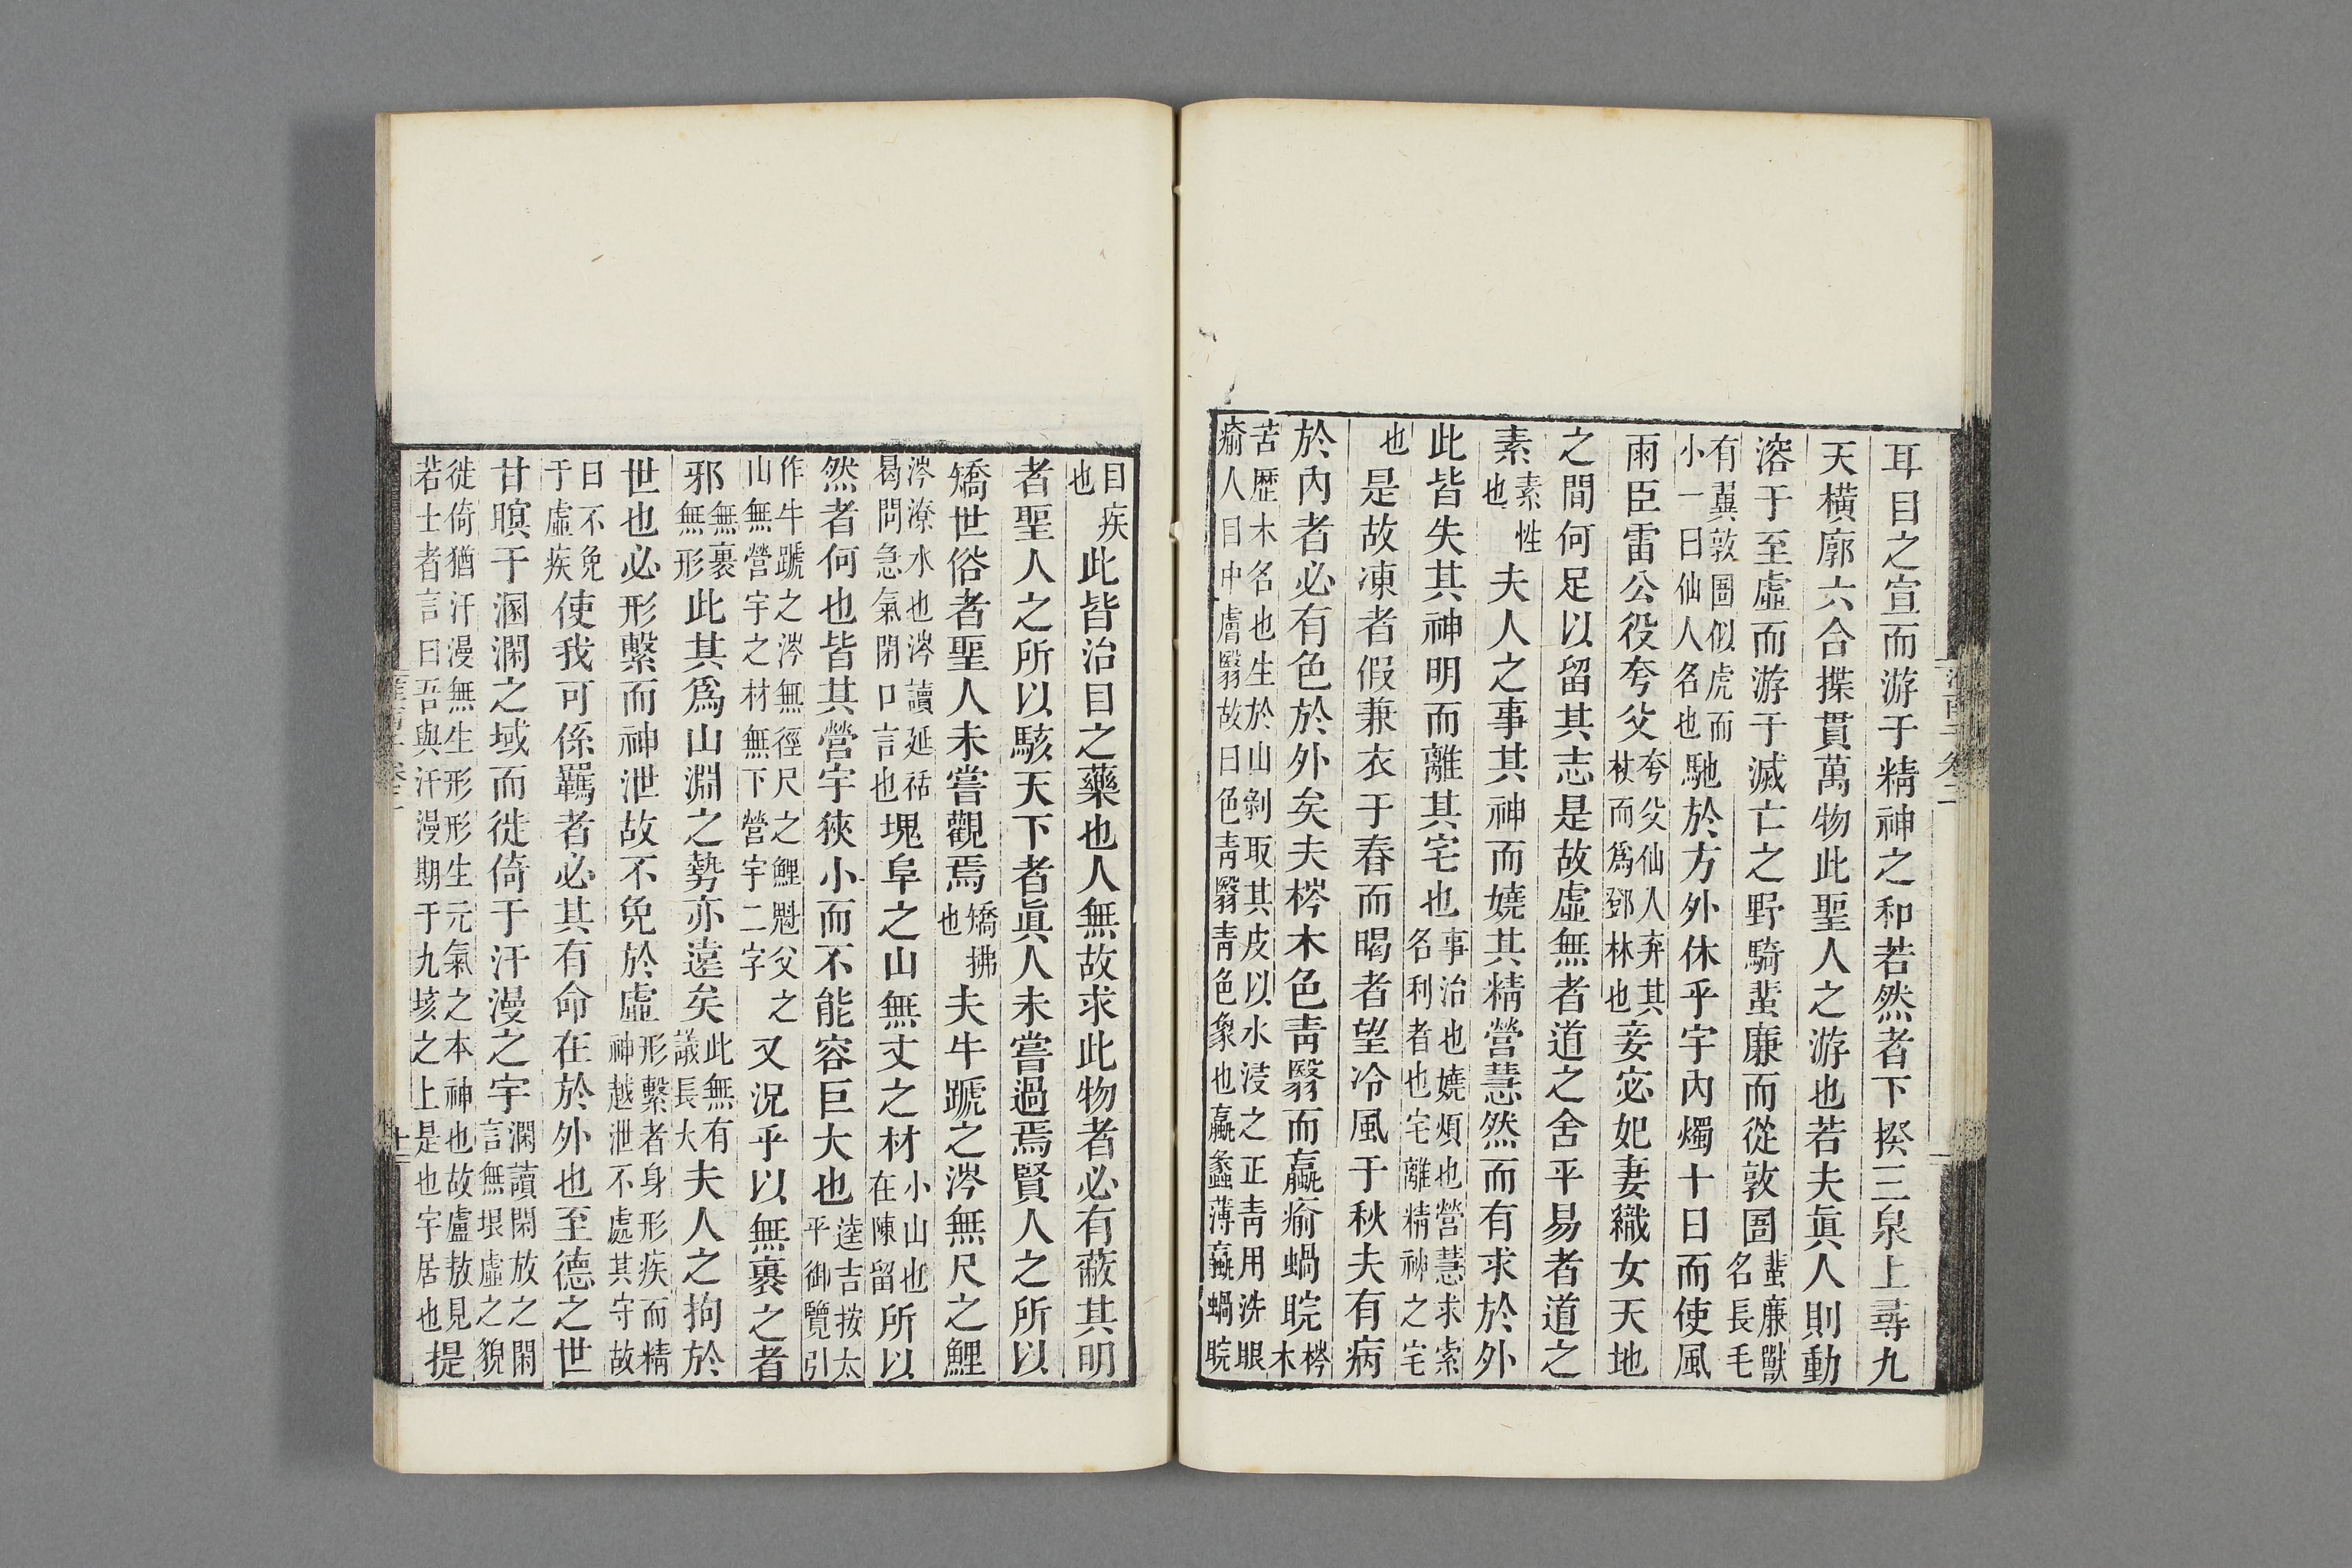 耳目之宣而游于精神之和若然者下揆三泉上尋九
天橫廓六合揲貫萬物此聖人之游也若夫眞人則動
溶于至虛而游于滅亡之野騎蜚廉而從敦圄蜚廉獸名長毛
有翼敦圄似虎而小一曰仙人名也馳於方外休乎宇內燭十日而使風
雨臣雷公役夸父夸父仙人弃其杖而爲鄧林也妾宓妃妻織女天地
之間何足以留其志是故虛無者道之舍平易者道之
素素性也夫人之事其神而嬈其精營慧然而有求於外
此皆失其神明而離其宅也事治也嬈煩也營慧求索名利者也宅離精神之宅
也是故凍者假兼衣于春而暍者望冷風于秋夫有病
於內者必有色於外矣夫梣木色靑翳而蠃瘉蝸睆梣木
苦歷木名也生於山剝取其皮以水浸之正靑用洗眼瘉人目中膚翳故曰色靑翳靑色象也蠃蠡薄蠃蝸睆
目疾也此皆治目之藥也人無故求此物者必有蔽其明
者聖人之所以駭天下者眞人未嘗過焉賢人之所以
矯世俗者聖人未嘗觀焉矯拂也夫牛蹏之涔無尺之鯉
涔潦水也涔讀延祜曷問急氣閉口言也塊阜之山無丈之材小山也在陳留所以
然者何也皆其營宇狹小而不能容巨大也逵吉按太平御覽引
作牛蹏之涔無徑尺之鯉魁父之山無營宇之材無下營宇二字又況乎以無裹之者
邪無裹無形此其爲山淵之勢亦遠矣此無有議長大夫人之拘於
世也必形繫而神泄故不免於虛形繫者身形疾而精神越泄不處其守故
曰不免于虛疾使我可係羈者必其有命在於外也至德之世
甘瞑于溷澖之域而徙倚于汗漫之宇澖讀閑放之閑言無垠虛之貌
徙倚猶汗漫無生形形生元氣之本神也故盧敖見若士者言曰吾與汗漫期于九垓之上是也宇居也提